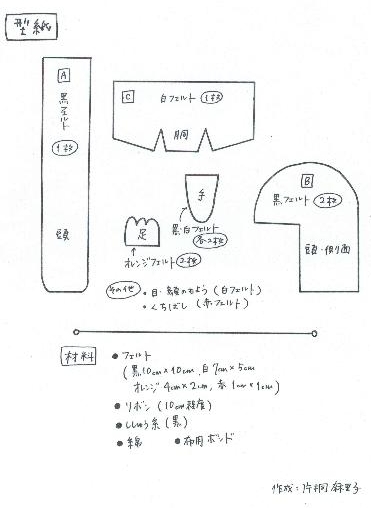 型紙
A
黒フェルト
1枚
頭
C 白フェルト 1枚
胴
手
黒・白フェルト
各2枚
足
オレンジフェルト 2枚
B
黒フェルト 2枚
頭・側面
その他 ・目・顔のもよう (白フェルト)
・くちばし (赤フェルト)
材料 ●フェルト
(黒10cm×10cm, 白7cm×5cm
オレンジ4cm×2cm, 赤1cm×1cm)
●リボン (10cm程度)
●ししゅう糸 (黒)
●綿 ●布用ボンド
作成:片桐